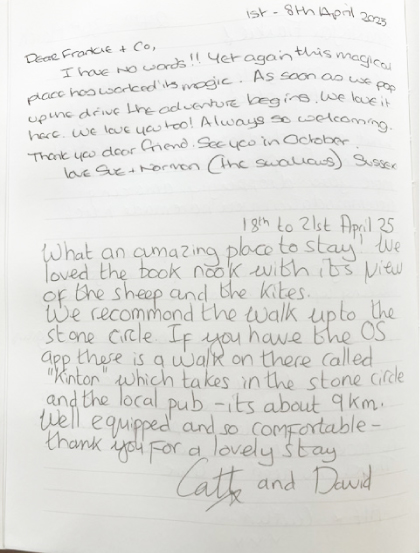 1st - 8th April 2025
Dear Frankie + Co,
I have no words!! Yet again this magical
place has worked its magic. As soon as we pop
up the drive the adventure begins. We love it
here. We love you too! Always so welcoming.
Thank you dear friend. See you in October.
love Sue + Norman (the swallows) Sussex
18th to 21st April 25
What an amazing place to stay! We
loved the book nook with its view
of the sheep and the kites.
We recommend the walk upto the
stone circle. If you have the OS
app there is a walk on there called
"Kinton" which takes in the stone circle
and the local pub - its about 9km.
Well equipped and so comfortable -
thank you for a lovely stay
Catt x and David